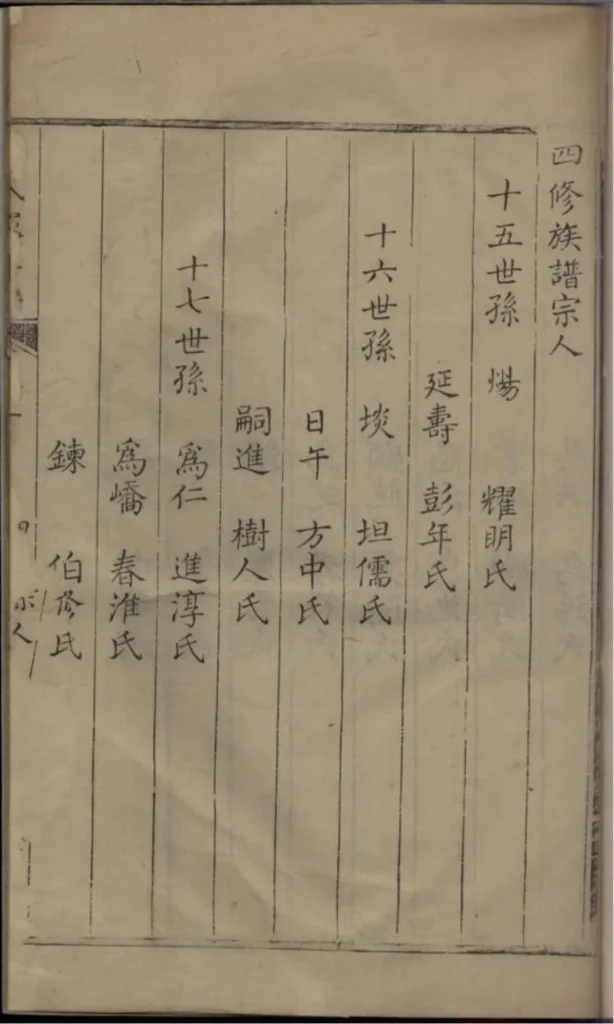 四修族譜宗人
十五世孫 煬 耀明氏
延壽 彭年氏
十六世孫 埮 坦儒氏
日午 方中氏
嗣進 樹人氏
十七世孫 為仁 進淳氏
為嶠 春淮氏
鍊 伯修氏